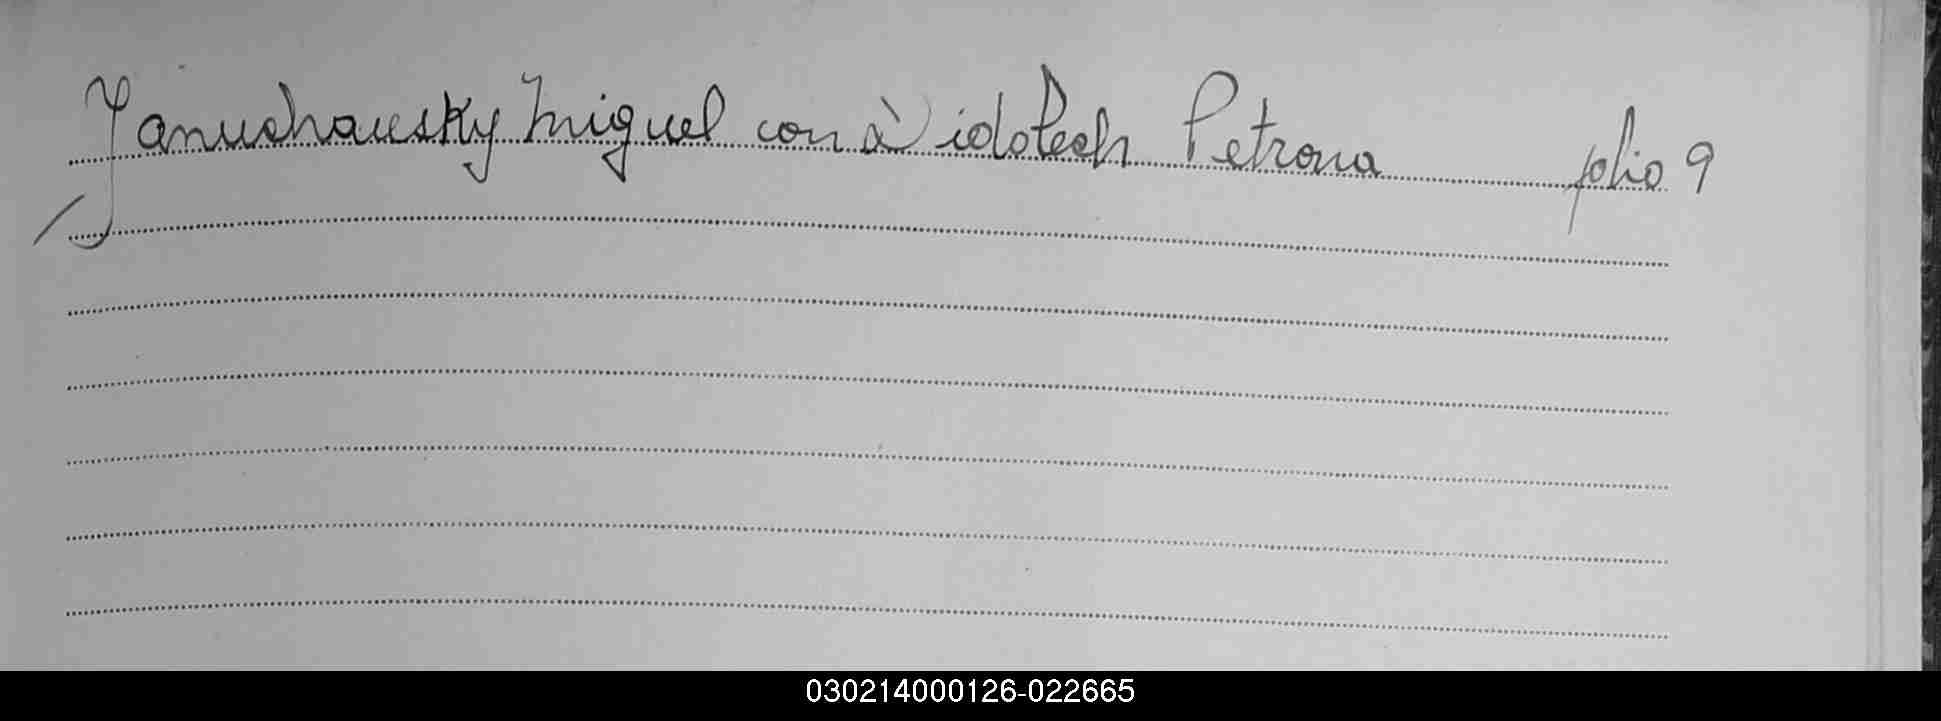 Janushausky Miguel con Petrona folio 9
030214000126-022665